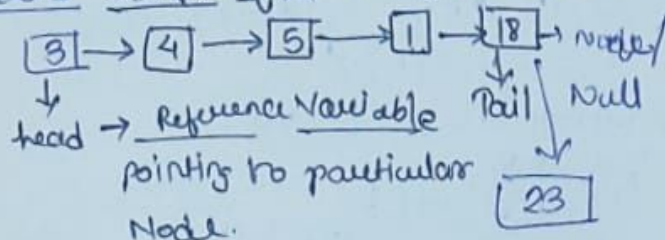 3 → 4 → 5 → 1 → 18 → Node/
Null
head → Reference Variable
Tail
pointing to particular
Node.
23